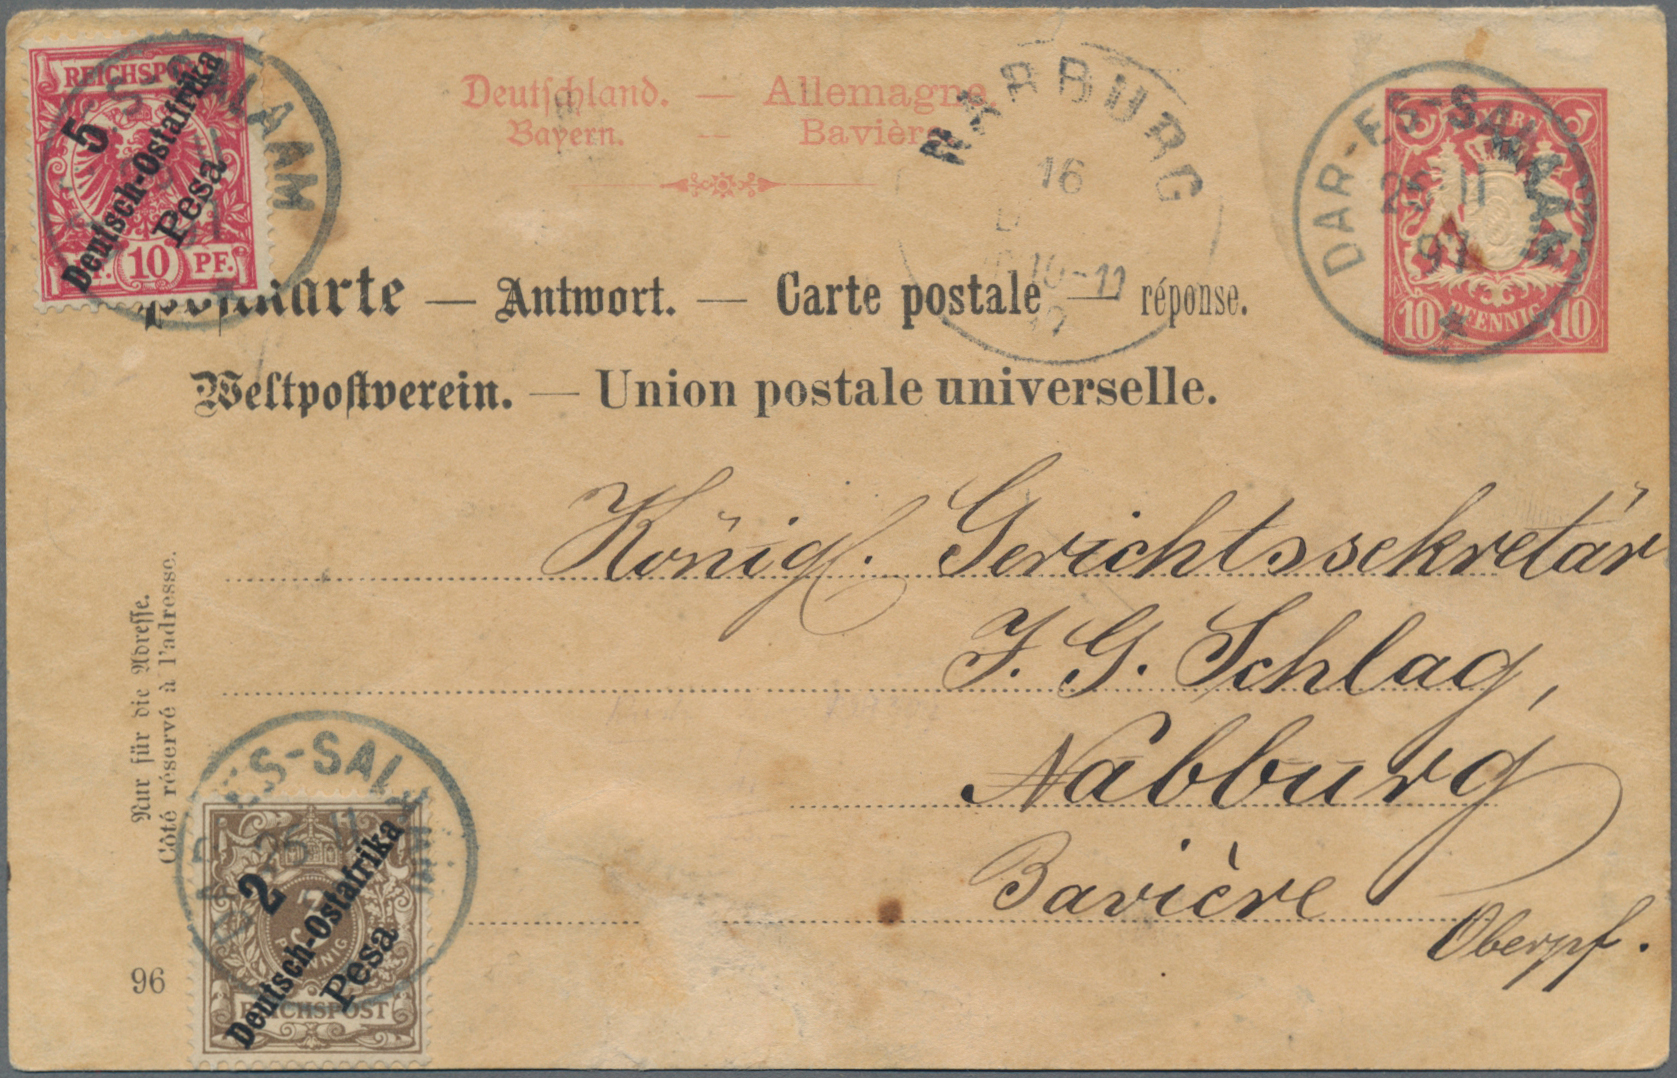 REICHSPOST
5
Deutsch-Ostafrika
Pesa
10 PF.
S-SALAAM
Deutschland. — Allemagne.
Bayern. — Bavière
NABBURG
16
10-11
DAR-ES-SALAAM
26 11
97
10 PFENNIG 10
Postkarte — Antwort. — Carte postale — réponse.
Weltpostverein. — Union postale universelle.
Königl. Gerichtssekretär
J. G. Schlag,
Nabburg
Bavière
Oberpf.
Nur für die Adresse.
Côté réservé à l'adresse.
DAR-ES-SALAAM
26 11
2
Deutsch-Ostafrika
Pesa
3
PFENNIG
REICHSPOST
96